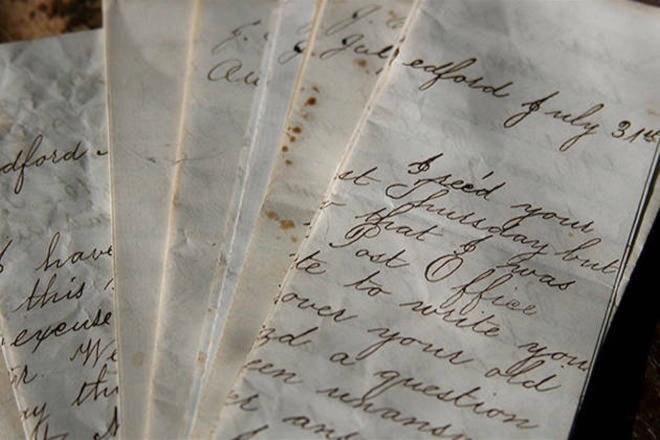 edford July 31st
I rec'd your
st Thursday but
that I was
Post Office
te to write you
over your old
d a question
een unansw
er
dford
I have
this
excuse
r. We
y th
J.
Jul
Au